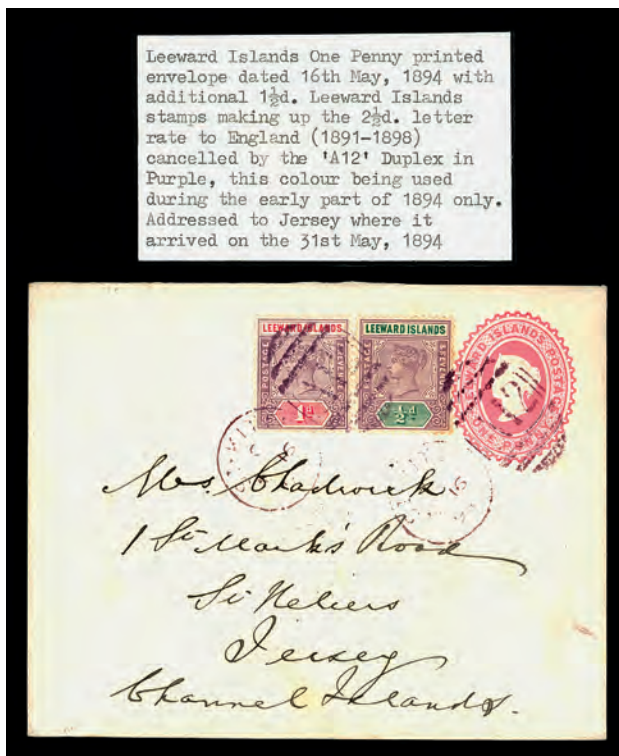 Leeward Islands One Penny printed
envelope dated 16th May, 1894 with
additional 1½d. Leeward Islands
stamps making up the 2½d. letter
rate to England (1891-1898)
cancelled by the 'A12' Duplex in
Purple, this colour being used
during the early part of 1894 only.
Addressed to Jersey where it
arrived on the 31st May, 1894
LEEWARD ISLANDS
POSTAGE
1d
LEEWARD ISLANDS
POSTAGE
½d
LEEWARD ISLANDS POSTAGE
ONE PENNY
Mrs. Chadwick
1 St Mark's Road
St Heliers
Jersey
Channel Islands.